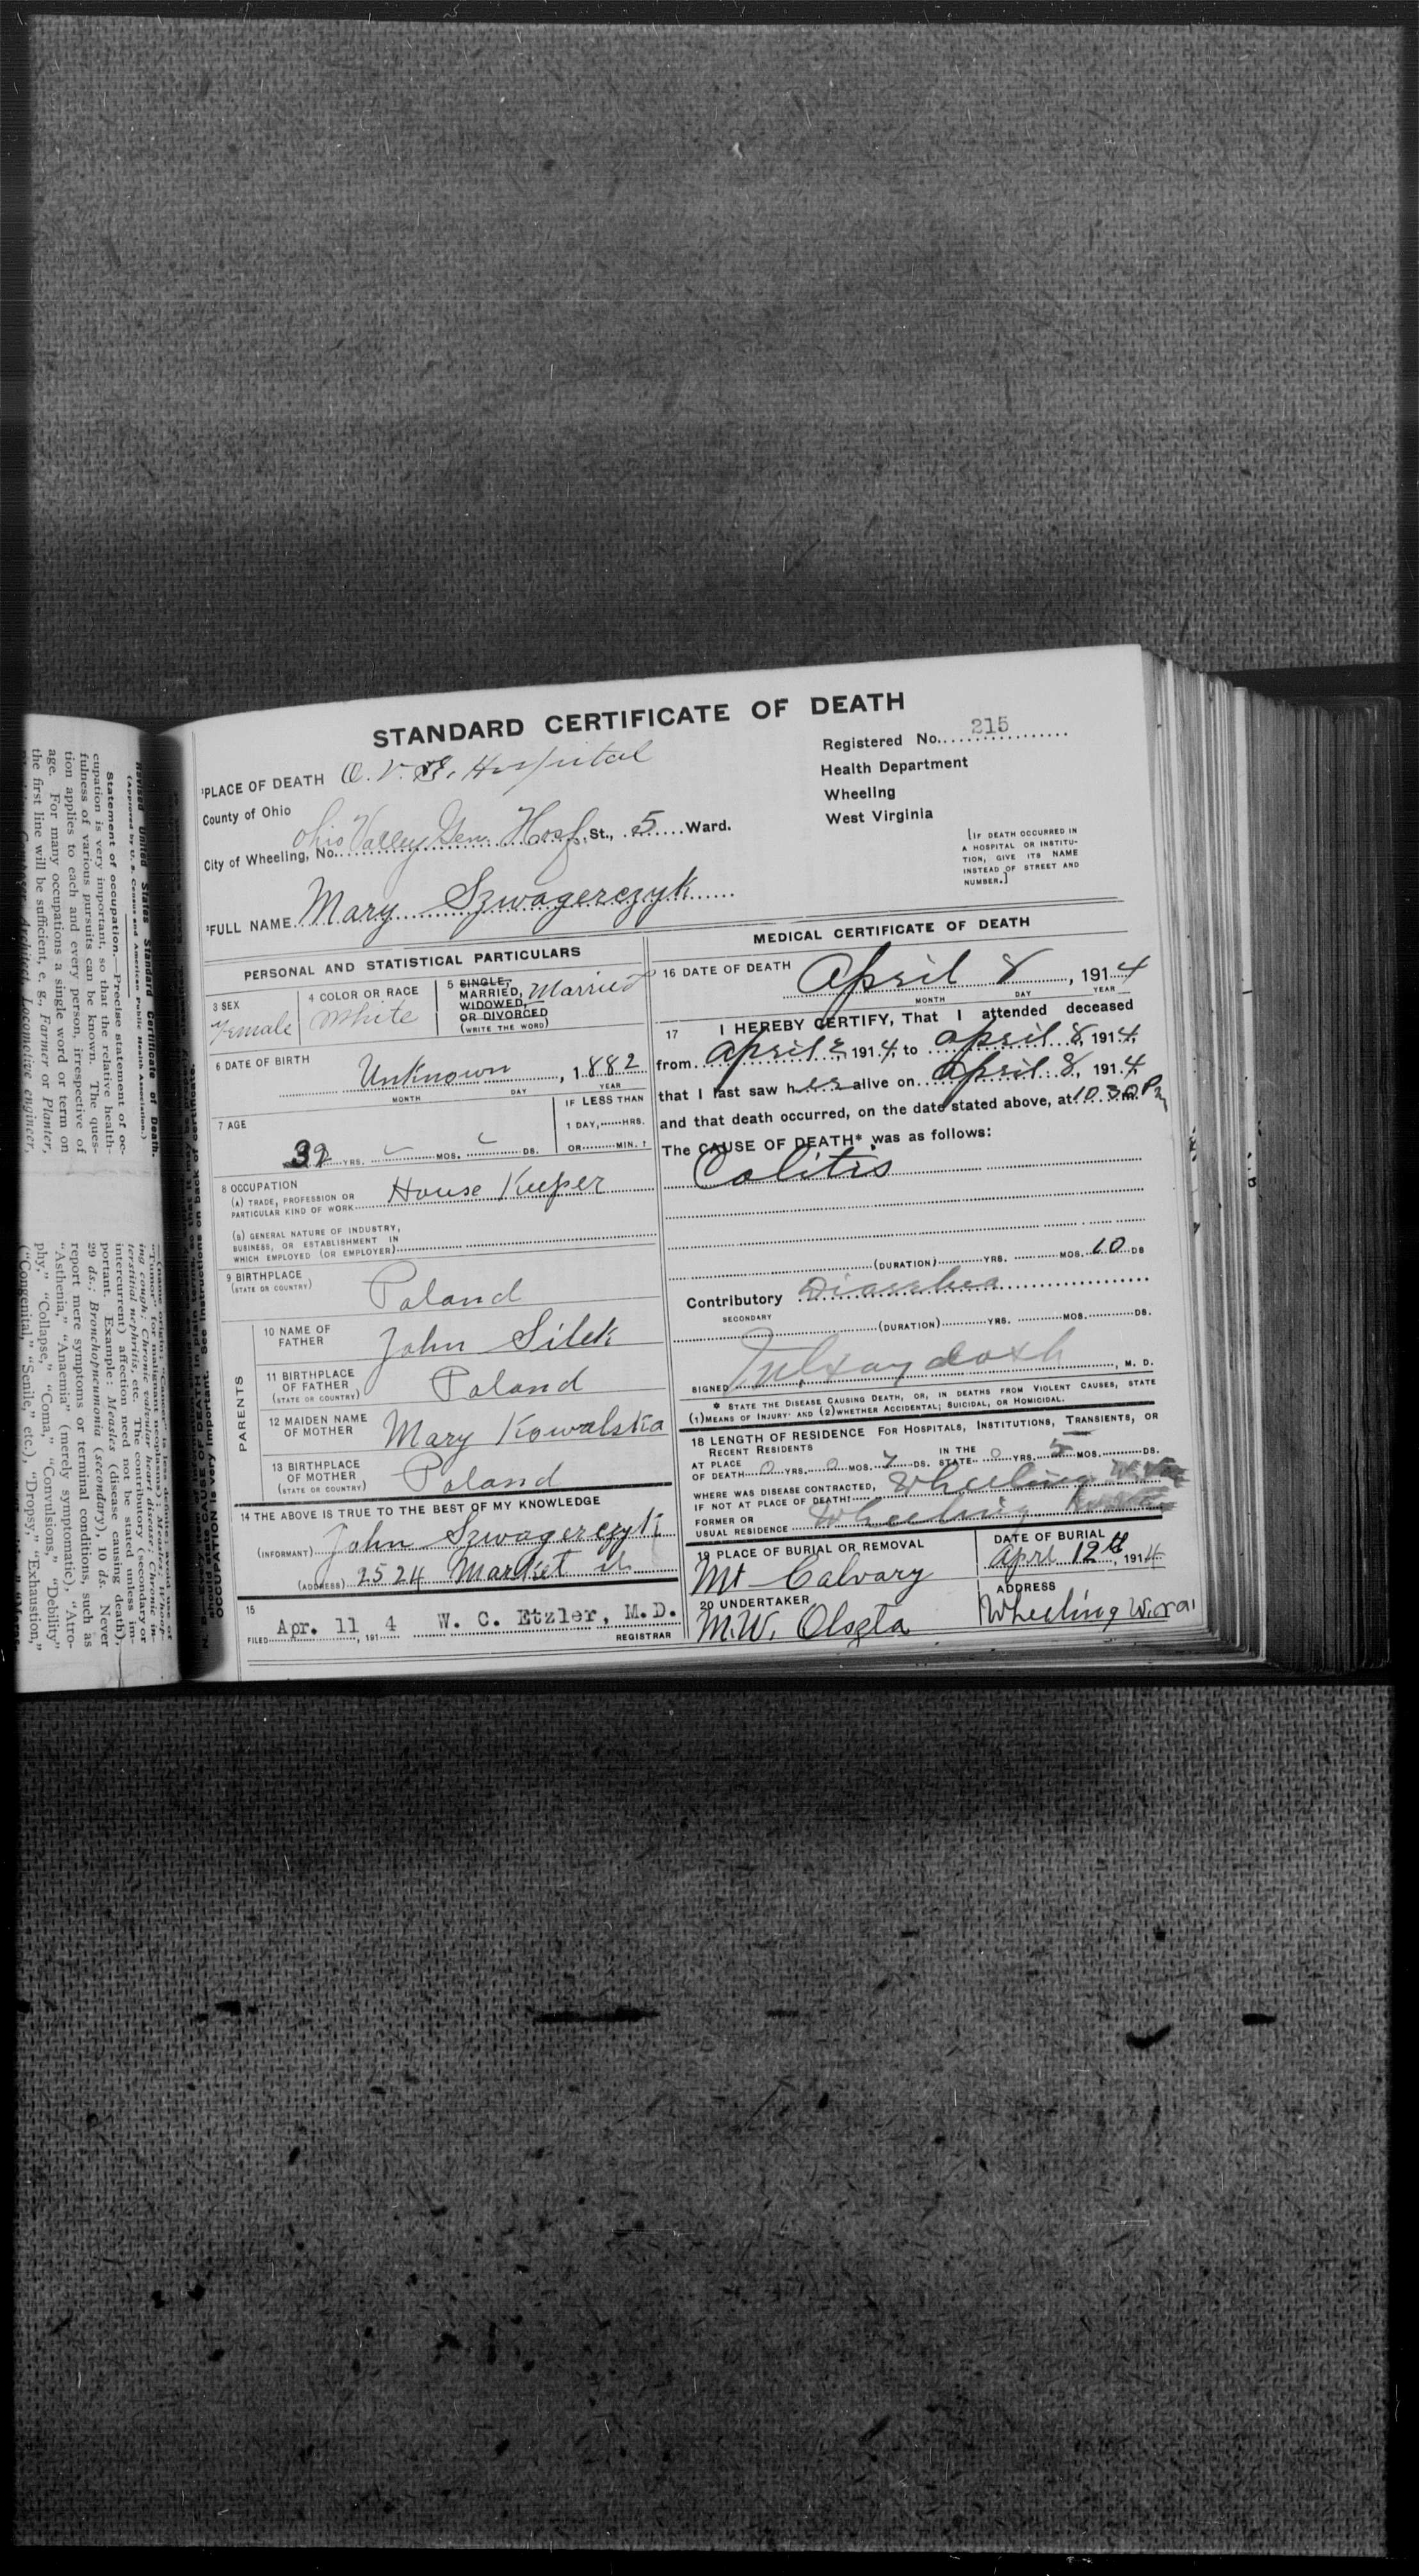 STANDARD CERTIFICATE OF DEATH
Registered No. 215
Health Department
Wheeling
West Virginia
[IF DEATH OCCURRED IN
A HOSPITAL OR INSTITU-
TION, GIVE ITS NAME
INSTEAD OF STREET AND
NUMBER.]
1PLACE OF DEATH O. V. G. Hospital
County of Ohio
City of Wheeling, No. Ohio Valley Gen. Hosp. St., 5 Ward.
2FULL NAME Mary Szwagerczyk
PERSONAL AND STATISTICAL PARTICULARS
3 SEX
Female
4 COLOR OR RACE
White
5 SINGLE,
MARRIED,
WIDOWED,
OR DIVORCED
(WRITE THE WORD)
Married
6 DATE OF BIRTH
Unknown, 1882
MONTH DAY YEAR
7 AGE
32 YRS. MOS. DS.
IF LESS THAN
1 DAY, HRS.
OR MIN. ?
8 OCCUPATION
(A) TRADE, PROFESSION OR
PARTICULAR KIND OF WORK House Keeper
(B) GENERAL NATURE OF INDUSTRY,
BUSINESS, OR ESTABLISHMENT IN
WHICH EMPLOYED (OR EMPLOYER)
9 BIRTHPLACE
(STATE OR COUNTRY) Poland
PARENTS
10 NAME OF
FATHER John Silek
11 BIRTHPLACE
OF FATHER
(STATE OR COUNTRY) Poland
12 MAIDEN NAME
OF MOTHER Mary Kowalska
13 BIRTHPLACE
OF MOTHER
(STATE OR COUNTRY) Poland
14 THE ABOVE IS TRUE TO THE BEST OF MY KNOWLEDGE
(INFORMANT) John Szwagerczyk
(ADDRESS) 2524 Market st
15
FILED Apr. 11, 191 4 W. C. Etzler, M.D.
REGISTRAR
MEDICAL CERTIFICATE OF DEATH
16 DATE OF DEATH April 8, 1914
MONTH DAY YEAR
17 I HEREBY CERTIFY, That I attended deceased
from April 2, 1914, to April 8, 1914,
that I last saw her alive on April 8, 1914
and that death occurred, on the date stated above, at 10 30 P m.
The CAUSE OF DEATH* was as follows:
Colitis
(DURATION) YRS. MOS. 10 DS
Contributory Diarrhea
SECONDARY
(DURATION) YRS. MOS. DS.
SIGNED , M. D.
* STATE THE DISEASE CAUSING DEATH, OR, IN DEATHS FROM VIOLENT CAUSES, STATE
(1) MEANS OF INJURY- AND (2) WHETHER ACCIDENTAL; SUICIDAL, OR HOMICIDAL.
18 LENGTH OF RESIDENCE FOR HOSPITALS, INSTITUTIONS, TRANSIENTS, OR
RECENT RESIDENTS
AT PLACE IN THE
OF DEATH 0 YRS. 0 MOS. 7 DS. STATE 0 YRS. 5 MOS. DS.
WHERE WAS DISEASE CONTRACTED,
IF NOT AT PLACE OF DEATH? Wheeling
FORMER OR
USUAL RESIDENCE Wheeling
19 PLACE OF BURIAL OR REMOVAL
Mt Calvary
DATE OF BURIAL
Aprl 12th, 1914
20 UNDERTAKER
M.W. Olszta
ADDRESS
Wheeling W.Va
Revised United States Standard Certificate of Death.
(Approved by U. S. Census and American Public Health Association.)
Statement of occupation.—Precise statement of oc-
cupation is very important, so that the relative health-
fulness of various pursuits can be known. The ques-
tion applies to each and every person, irrespective of
age. For many occupations a single word or term on
the first line will be sufficient, e. g., Farmer or Planter,
Architect, Locomotive engineer,
"Tumor" for malignant neoplasms); Measles; Whoop-
ing cough; Chronic valvular heart disease; Chronic in-
terstitial nephritis, etc. The contributory (secondary or
intercurrent) affection need not be stated unless im-
portant. Example: Measles (disease causing death),
29 ds.; Bronchopneumonia (secondary), 10 ds. Never
report mere symptoms or terminal conditions, such as
"Asthenia," "Anaemia" (merely symptomatic), "Atro-
phy," "Collapse," "Coma," "Convulsions," "Debility"
("Congenital," "Senile," etc.), "Dropsy," "Exhaustion,"